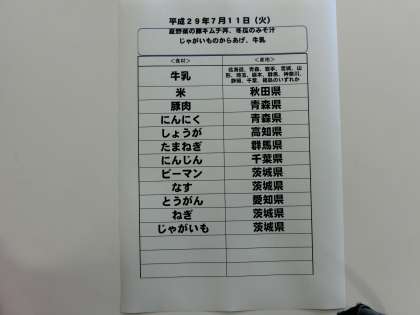 平成29年7月11日（火）
夏野菜の豚キムチ丼、冬瓜のみそ汁
じゃがいものからあげ、牛乳
＜食材＞ ＜産地＞
牛乳 北海道、青森、岩手、宮城、山
形、埼玉、栃木、群馬、神奈川、
静岡、千葉、福島のいずれか
米 秋田県
豚肉 青森県
にんにく 青森県
しょうが 高知県
たまねぎ 群馬県
にんじん 千葉県
ピーマン 茨城県
なす 茨城県
とうがん 愛知県
ねぎ 茨城県
じゃがいも 茨城県